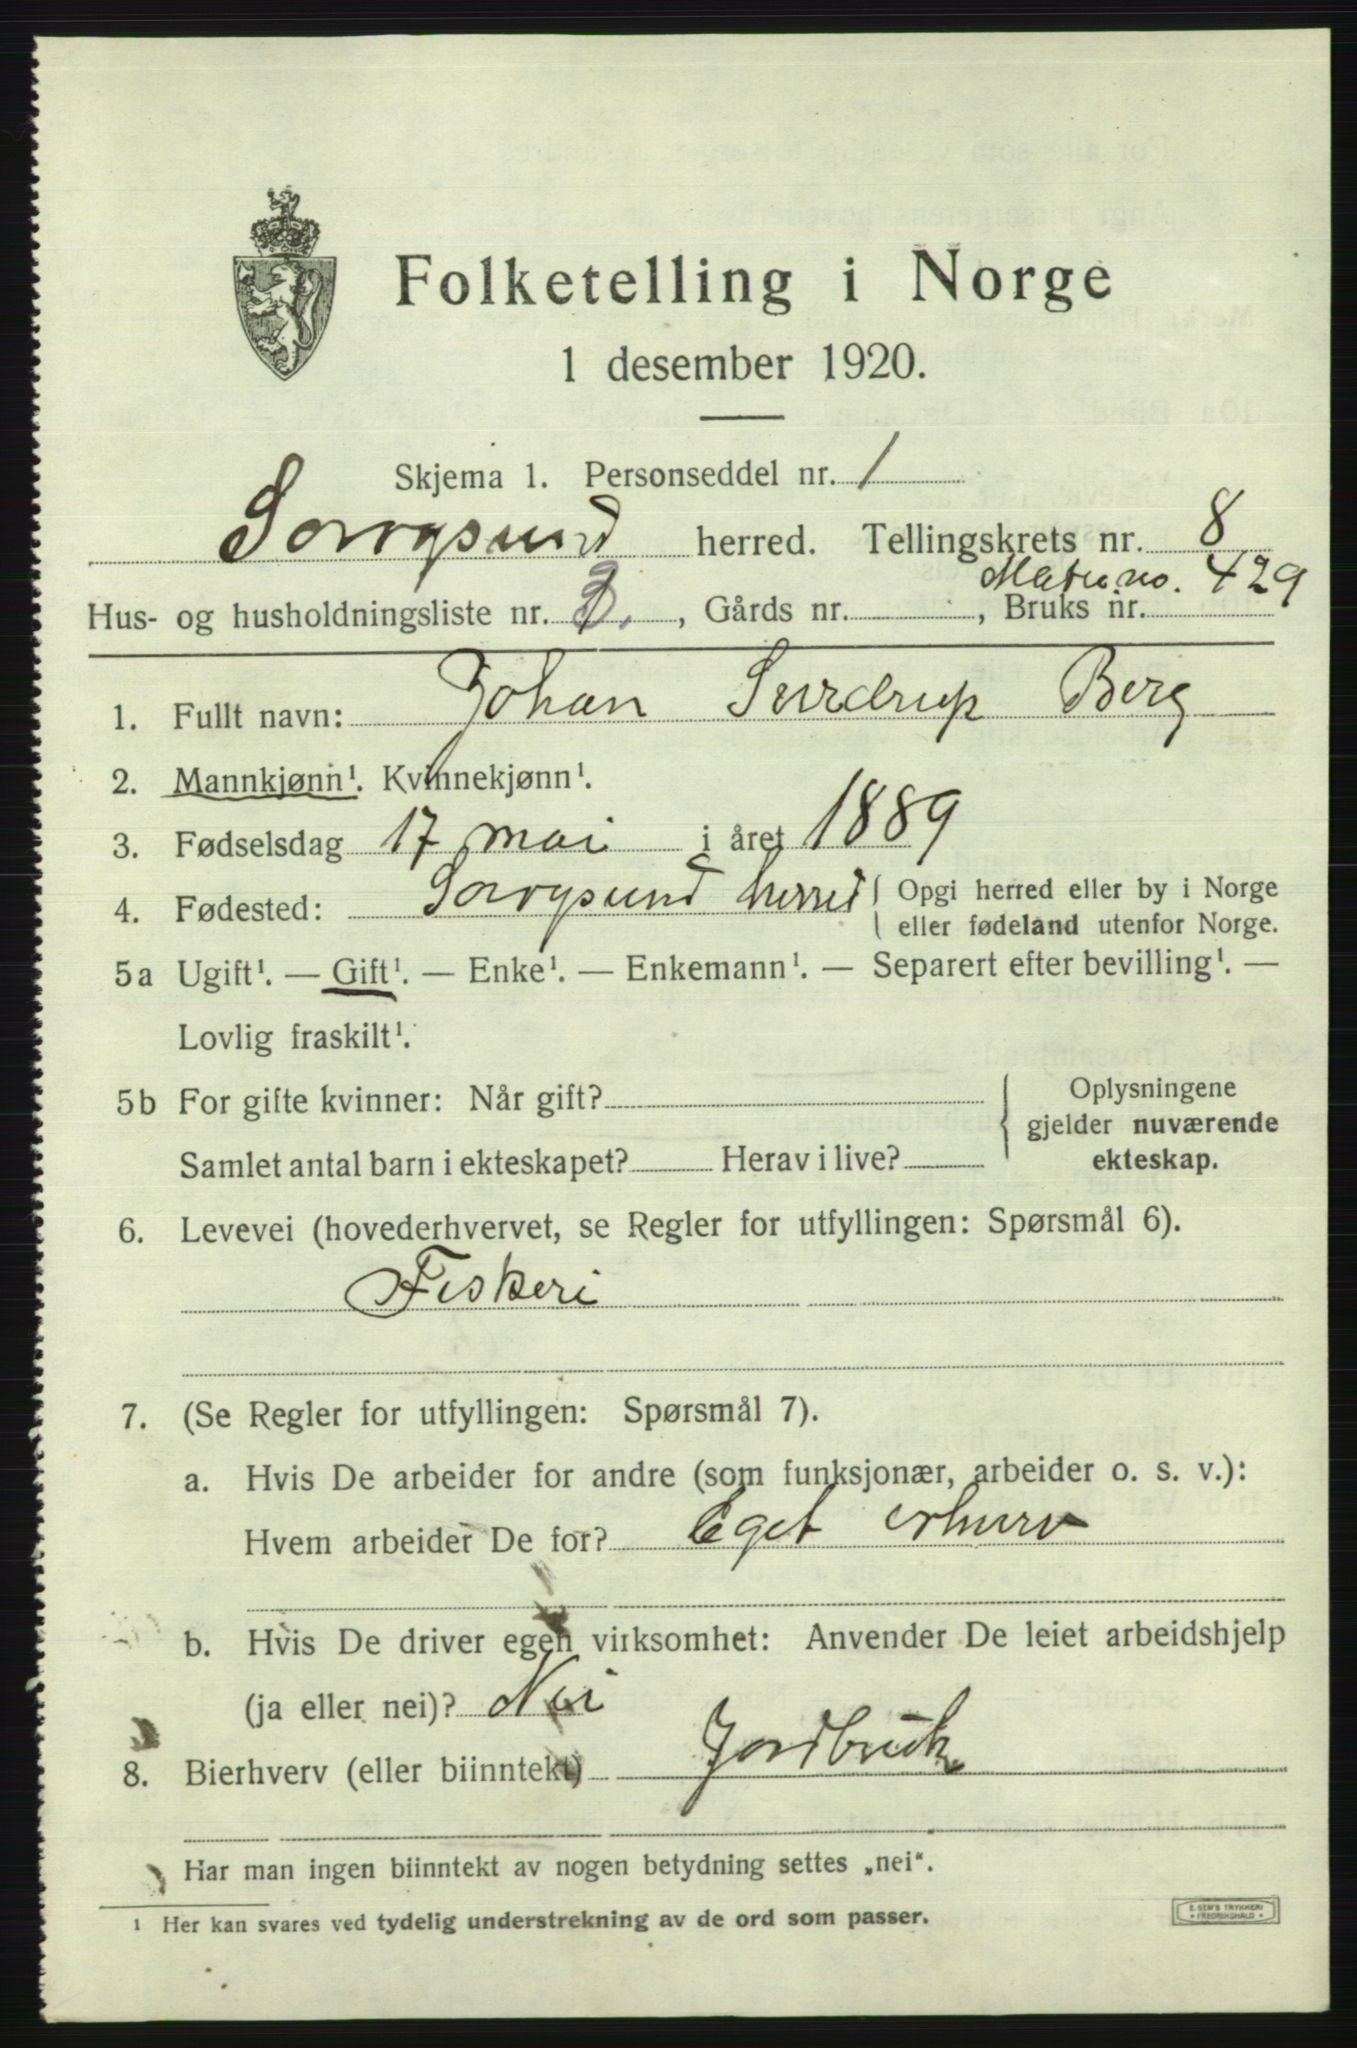 Folketelling i Norge
1 desember 1920.
Skjema 1. Personseddel nr. 1
Sørøysund herred. Tellingskrets nr. 8
Matr. no. 429
Hus- og husholdningsliste nr. 3., Gårds nr. , Bruks nr.
1. Fullt navn: Johan Sverdrup Berg
2. Mannkjønn¹. Kvinnekjønn¹.
3. Fødselsdag 17 mai i året 1889
4. Fødested: Sørøysund herred { Opgi herred eller by i Norge
eller fødeland utenfor Norge.
5a Ugift¹. — Gift¹. — Enke¹. — Enkemann¹. — Separert efter bevilling¹. —
Lovlig fraskilt¹.
5b For gifte kvinner: Når gift? { Oplysningene
gjelder nuværende
Samlet antal barn i ekteskapet? Herav i live? ekteskap.
6. Levevei (hovederhvervet, se Regler for utfyllingen: Spørsmål 6).
Fiskeri
7. (Se Regler for utfyllingen: Spørsmål 7).
a. Hvis De arbeider for andre (som funksjonær, arbeider o. s. v.):
Hvem arbeider De for? Eget erhverv
b. Hvis De driver egen virksomhet: Anvender De leiet arbeidshjelp
(ja eller nei)? Nei
8. Bierhverv (eller biinntekt) Jordbruk
Har man ingen biinntekt av nogen betydning settes „nei“.
¹ Her kan svares ved tydelig understrekning av de ord som passer.
E. SEM'S TRYKKERI
• FREDRIKSHALD •